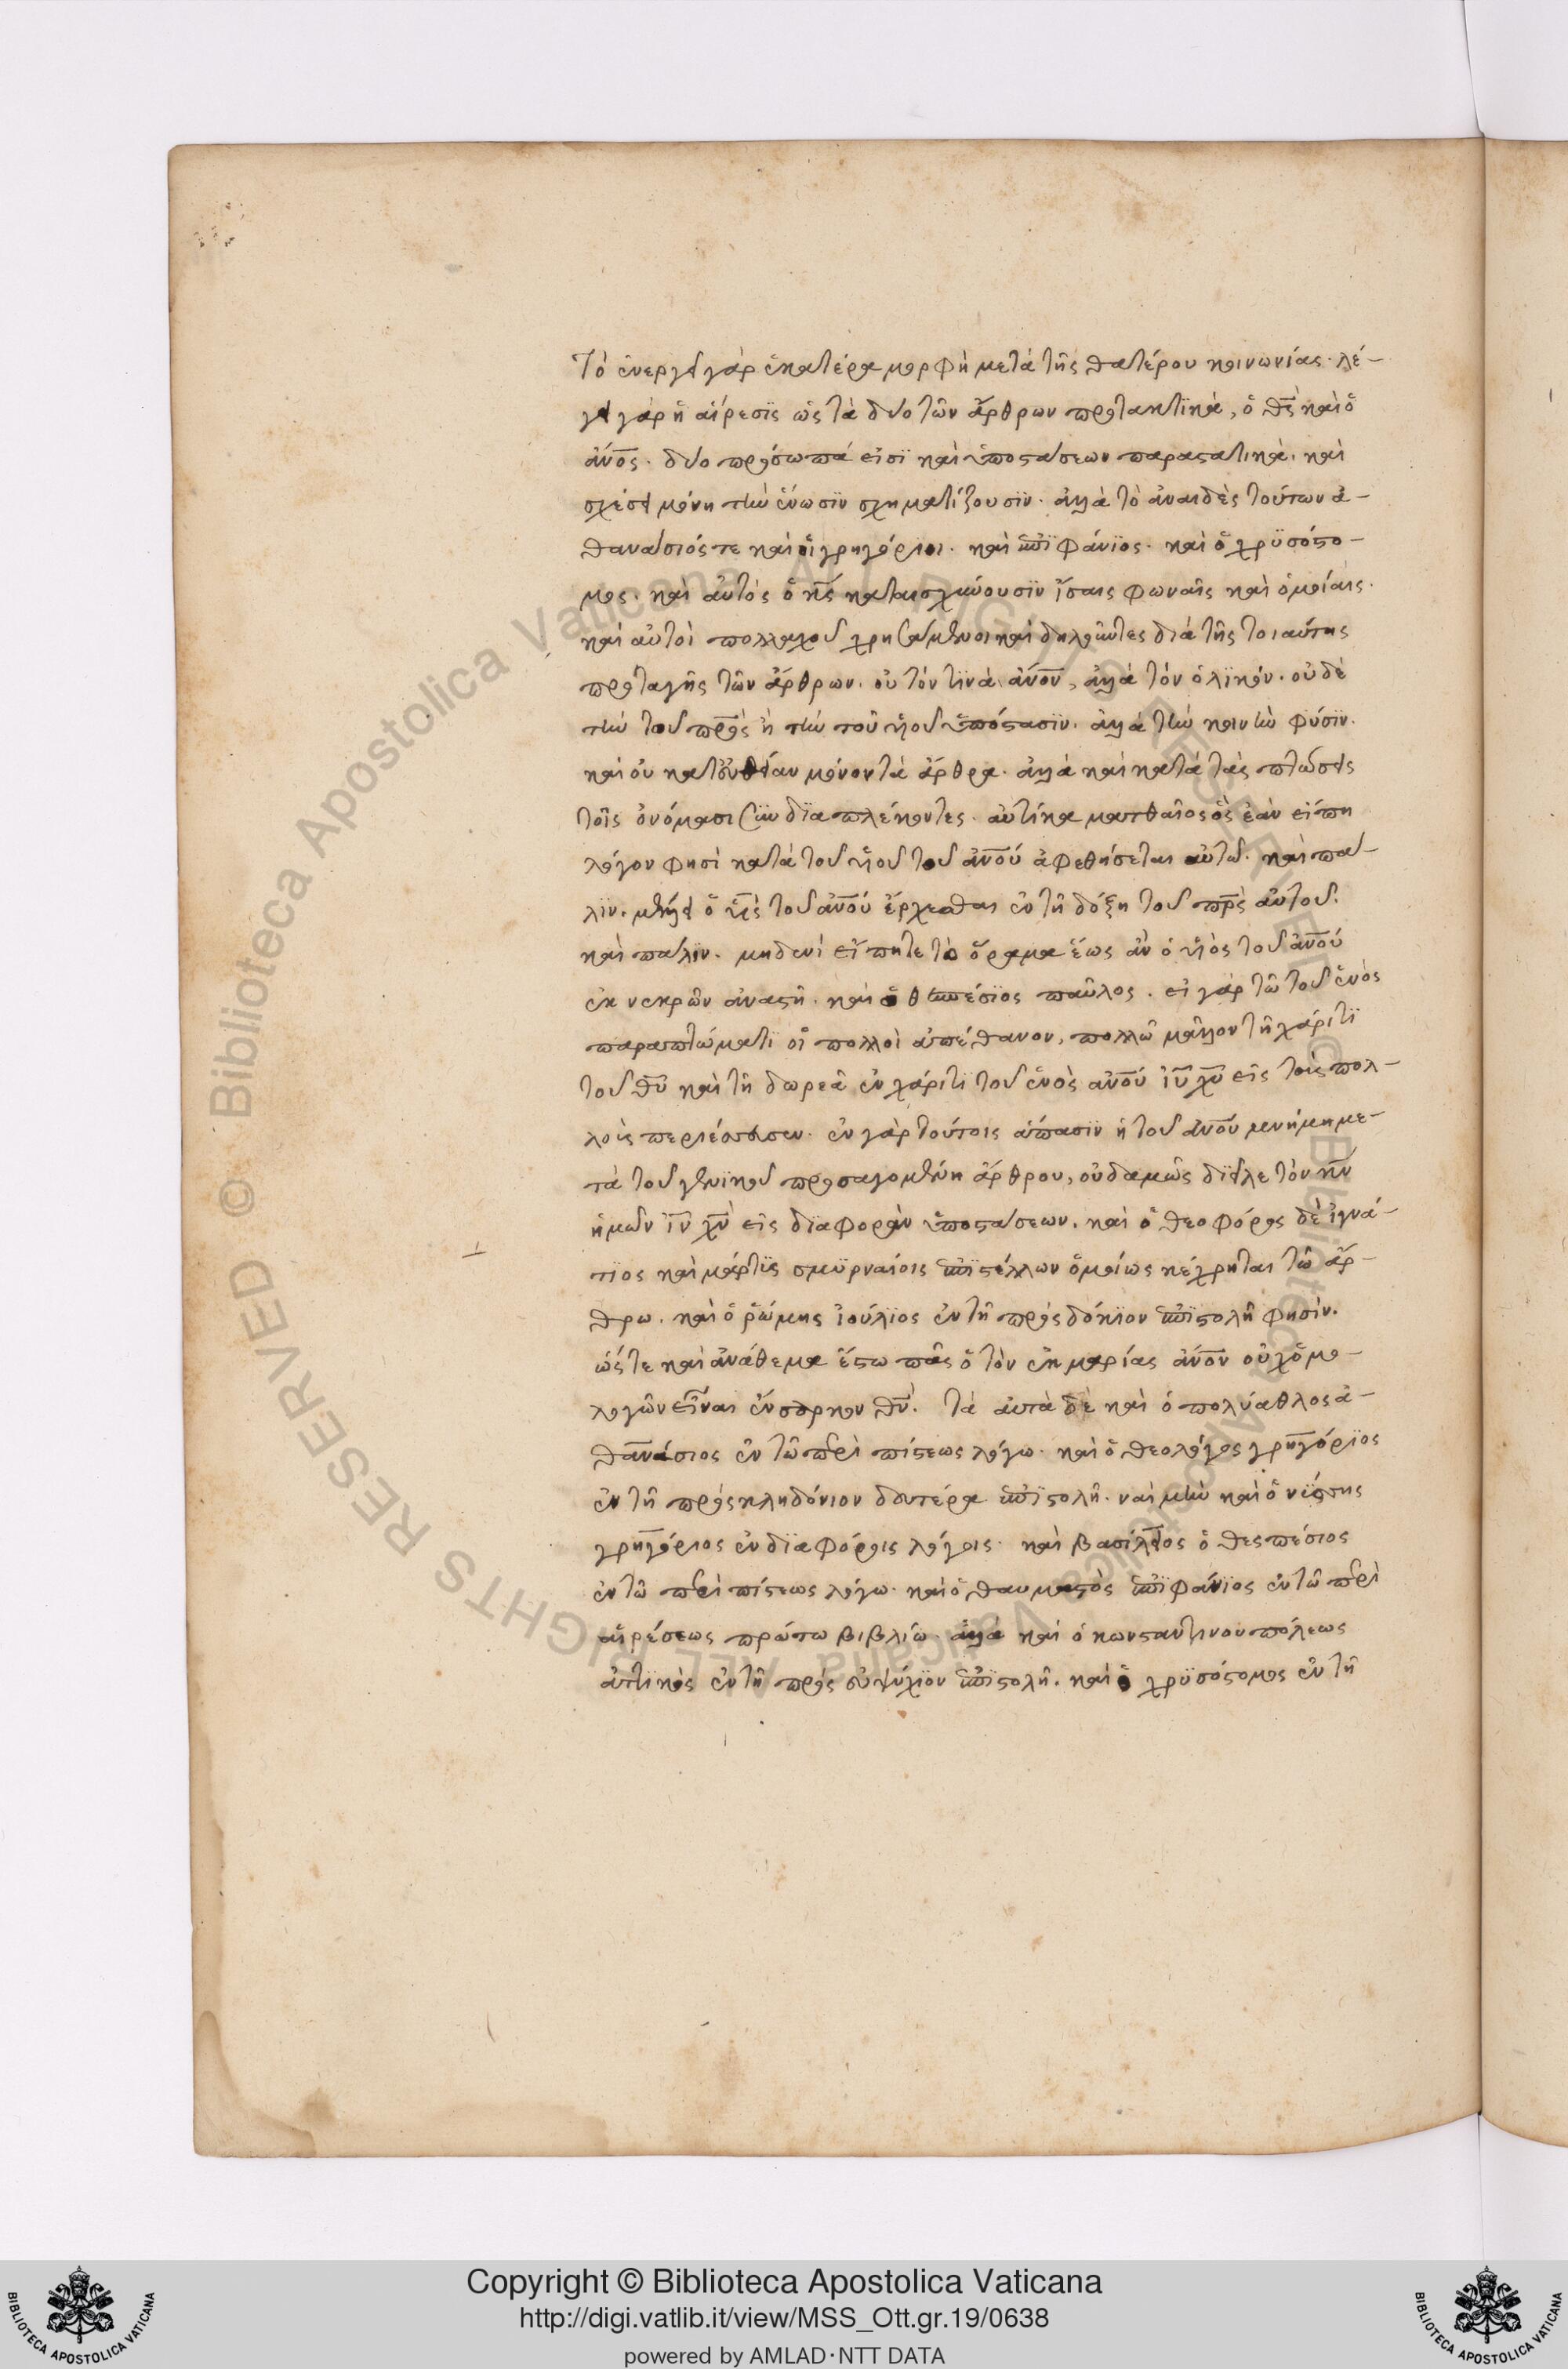 τὸ ἐνεργεῖ γὰρ ἑκατέρα μορφὴ μετὰ τῆς θατέρου κοινωνίας. λέ-
γει γὰρ ἡ αἵρεσϊς ὡς τὰ δύο τῶν ἄρθρων προτακτϊκὰ, ὁ θς καὶ ὁ
ἄνος. δύο πρόσωπά εἰσϊ καὶ ὑποστάσεων παραστατικὰ. καὶ
σχέσει μόνη τὴν ἕνωσϊν σχηματίζουσϊν. ἀλλὰ τὸ ἀναιδὲς τούτων ἀ-
θανάσιός τε καὶ οἱ γρηγόριοι. καὶ ἐπϊφάνϊος. καὶ ὁ χρϋσόστο-
μος. καὶ αὐτὸς ὁ κς καταισχύνουσϊν ἴσαις φωναῖς καὶ ὁμοίαις.
καὶ αὐτοὶ πολλαχοῦ χρησάμενοι καὶ δηλοῦντες διὰ τῆς τοιαύτης
προταγῆς τῶν ἄρθρων. οὐ τόν τϊνὰ ἄνον, ἀλλὰ τὸν ὁλϊκόν. οὐδὲ
τὴν τοῦ πρς ἢ τὴν τοῦ υἱοῦ ὑπόστασϊν. ἀλλὰ τὴν κοινὴν φύσϊν.
καὶ οὐ κατ' εὐθεῖαν μόνον τὰ ἄρθρα. ἀλλὰ καὶ κατὰ τὰς πτώσεις
τοῖς ὀνόμασι συνδϊαπλέκοντες. αὐτίκα ματθαῖος ὃς ἐὰν εἴπη
λόγον φησὶ κατὰ τοῦ υἱοῦ τοῦ ἀνοῦ ἀφεθήσεται αὐτῶ. καὶ πά-
λϊν. μέλλει ὁ υς τοῦ ἀνοῦ ἔρχεσθαι ἐν τῆ δόξη τοῦ πρς αὐτοῦ.
καὶ πάλϊν. μηδενὶ εἴπητε τὸ ὅραμα ἕως ἂν ὁ υἱὸς τοῦ ἀνοῦ
ἐκ νεκρῶν ἀναστῆ. καὶ ὁ θεσπέσϊος παῦλος. εἰ γὰρ τῶ τοῦ ἑνὸς
παραπτώματϊ οἱ πολλοὶ ἀπέθανον, πολλῶ μᾶλλον τῆ χάριτϊ
τοῦ θυ καὶ τῆ δωρεᾶ ἐν χάριτϊ τοῦ ἑνὸς ἀνοῦ ιυ χυ εἰς τοὺς πολ-
λοὺς περιέσσευσεν. ἐν γὰρ τούτοις ἅπασϊν ἡ τοῦ ἀνοῦ μνήμη με-
τὰ τοῦ γενϊκοῦ προσαγομένη ἄρθρου, οὐδαμῶς δϊεῖλε τὸν κν
ἡμῶν ιν χν εἰς δϊαφορὰν ὑποστάσεων. καὶ ὁ θεοφόρος δὲ ἰγνά-
τϊος καὶ μάρτϋς σμϋρναίοις ἐπϊστέλλων ὁμοίως κέχρηται τῶ ἄρ-
θρω. καὶ ὁ ῥώμης ἰούλϊος ἐν τῆ πρὸς δόκϊον ἐπϊστολῆ φησὶν.
ὥστε καὶ ἀνάθεμα ἔστω πᾶς ὁ τὸν ἐκ μαρίας ἄνον οὐχ ὁμο-
λογῶν εἶναι ἔνσαρκον θν. τὰ αὐτὰ δὲ καὶ ὁ πολύαθλος ἀ-
θανάσιος ἐν τῶ περὶ πίστεως λόγω. καὶ ὁ θεολόγος γρηγόρϊος
ἐν τῆ πρὸς κληδόνιον δευτέρα ἐπϊστολῆ. ναὶ μὴν καὶ ὁ νύσσης
γρηγόριος ἐν δϊαφόροις λόγοις. καὶ βασίλειος ὁ θεσπέσιος
ἐν τῶ περὶ πίστεως λόγω. καὶ ὁ θαυμαστὸς ἐπϊφάνϊος ἐν τῶ περὶ
αἱρέσεως πρώτω βιβλίω. ἀλλὰ καὶ ὁ κωνσταντινουπόλεως
ἀττϊκὸς ἐν τῆ πρὸς εὐψύχϊον ἐπϊστολῆ. καὶ ὁ χρϋσόστομος ἐν τῆ
Copyright © Biblioteca Apostolica Vaticana
http://digi.vatlib.it/view/MSS_Ott.gr.19/0638
powered by AMLAD·NTT DATA
BIBLIOTECA APOSTOLICA VATICANA
BIBLIOTECA APOSTOLICA VATICANA
© Biblioteca Apostolica Vaticana ALL RIGHTS RESERVED
© Biblioteca Apostolica Vaticana ALL RIGHTS RESERVED